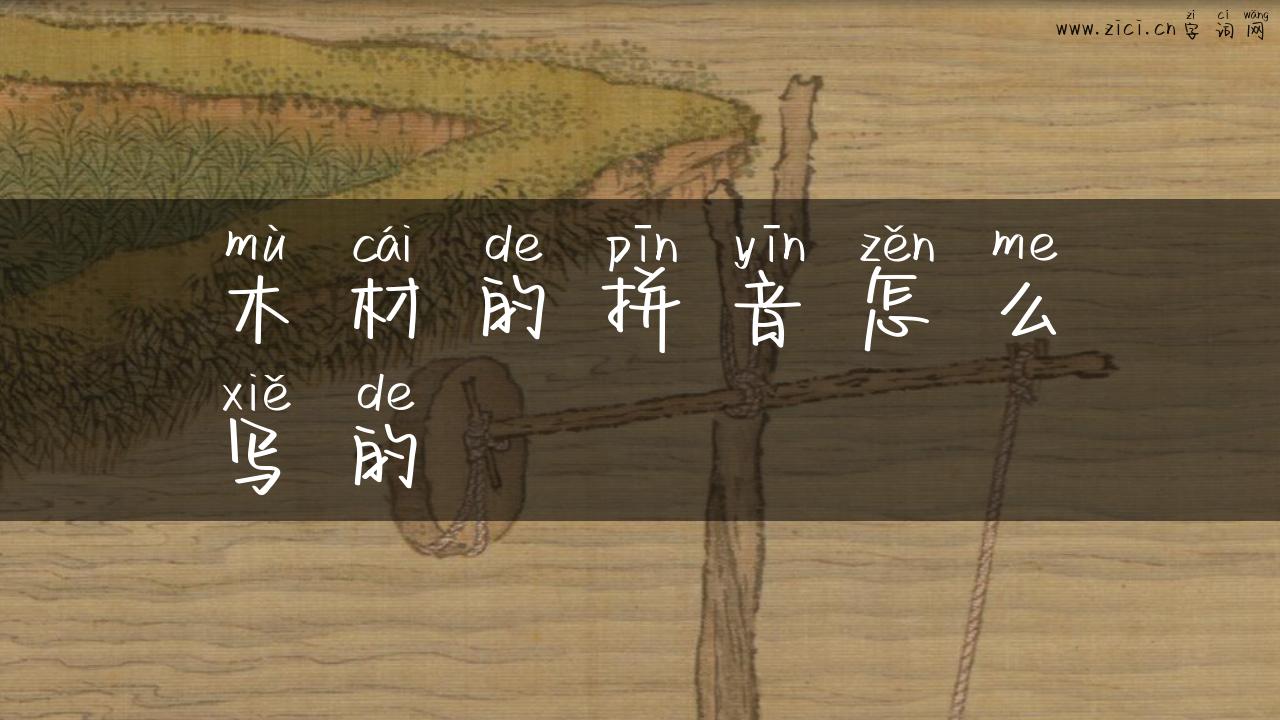 zì cí wǎng
www.zici.cn 字词网
mù cái de pīn yīn zěn me
木材的拼音怎么
xiě de
写的